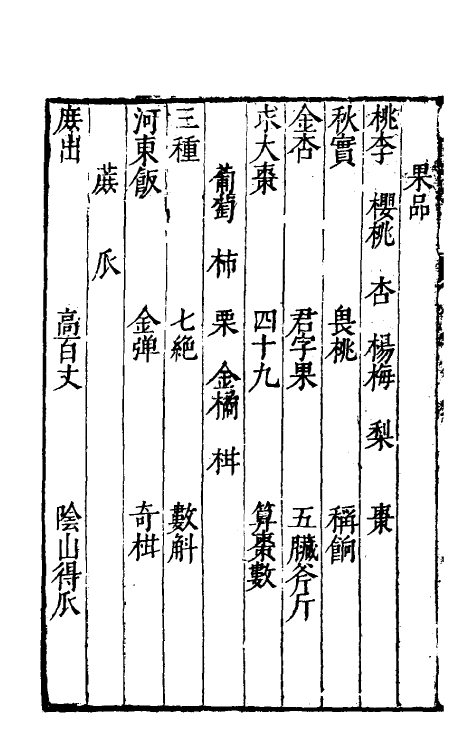 果品
桃李 櫻桃 杏 楊梅 梨 棗
秋實 畏桃 稱餉
金杏 君字果 五臟斧斤
朮大棗 四十九 算棗數
葡萄 柿 栗 金橘 柑
三種 七絶 數斛
河東飯 金弹 奇柑
蔗 瓜
庶出 高百丈 陰山得瓜